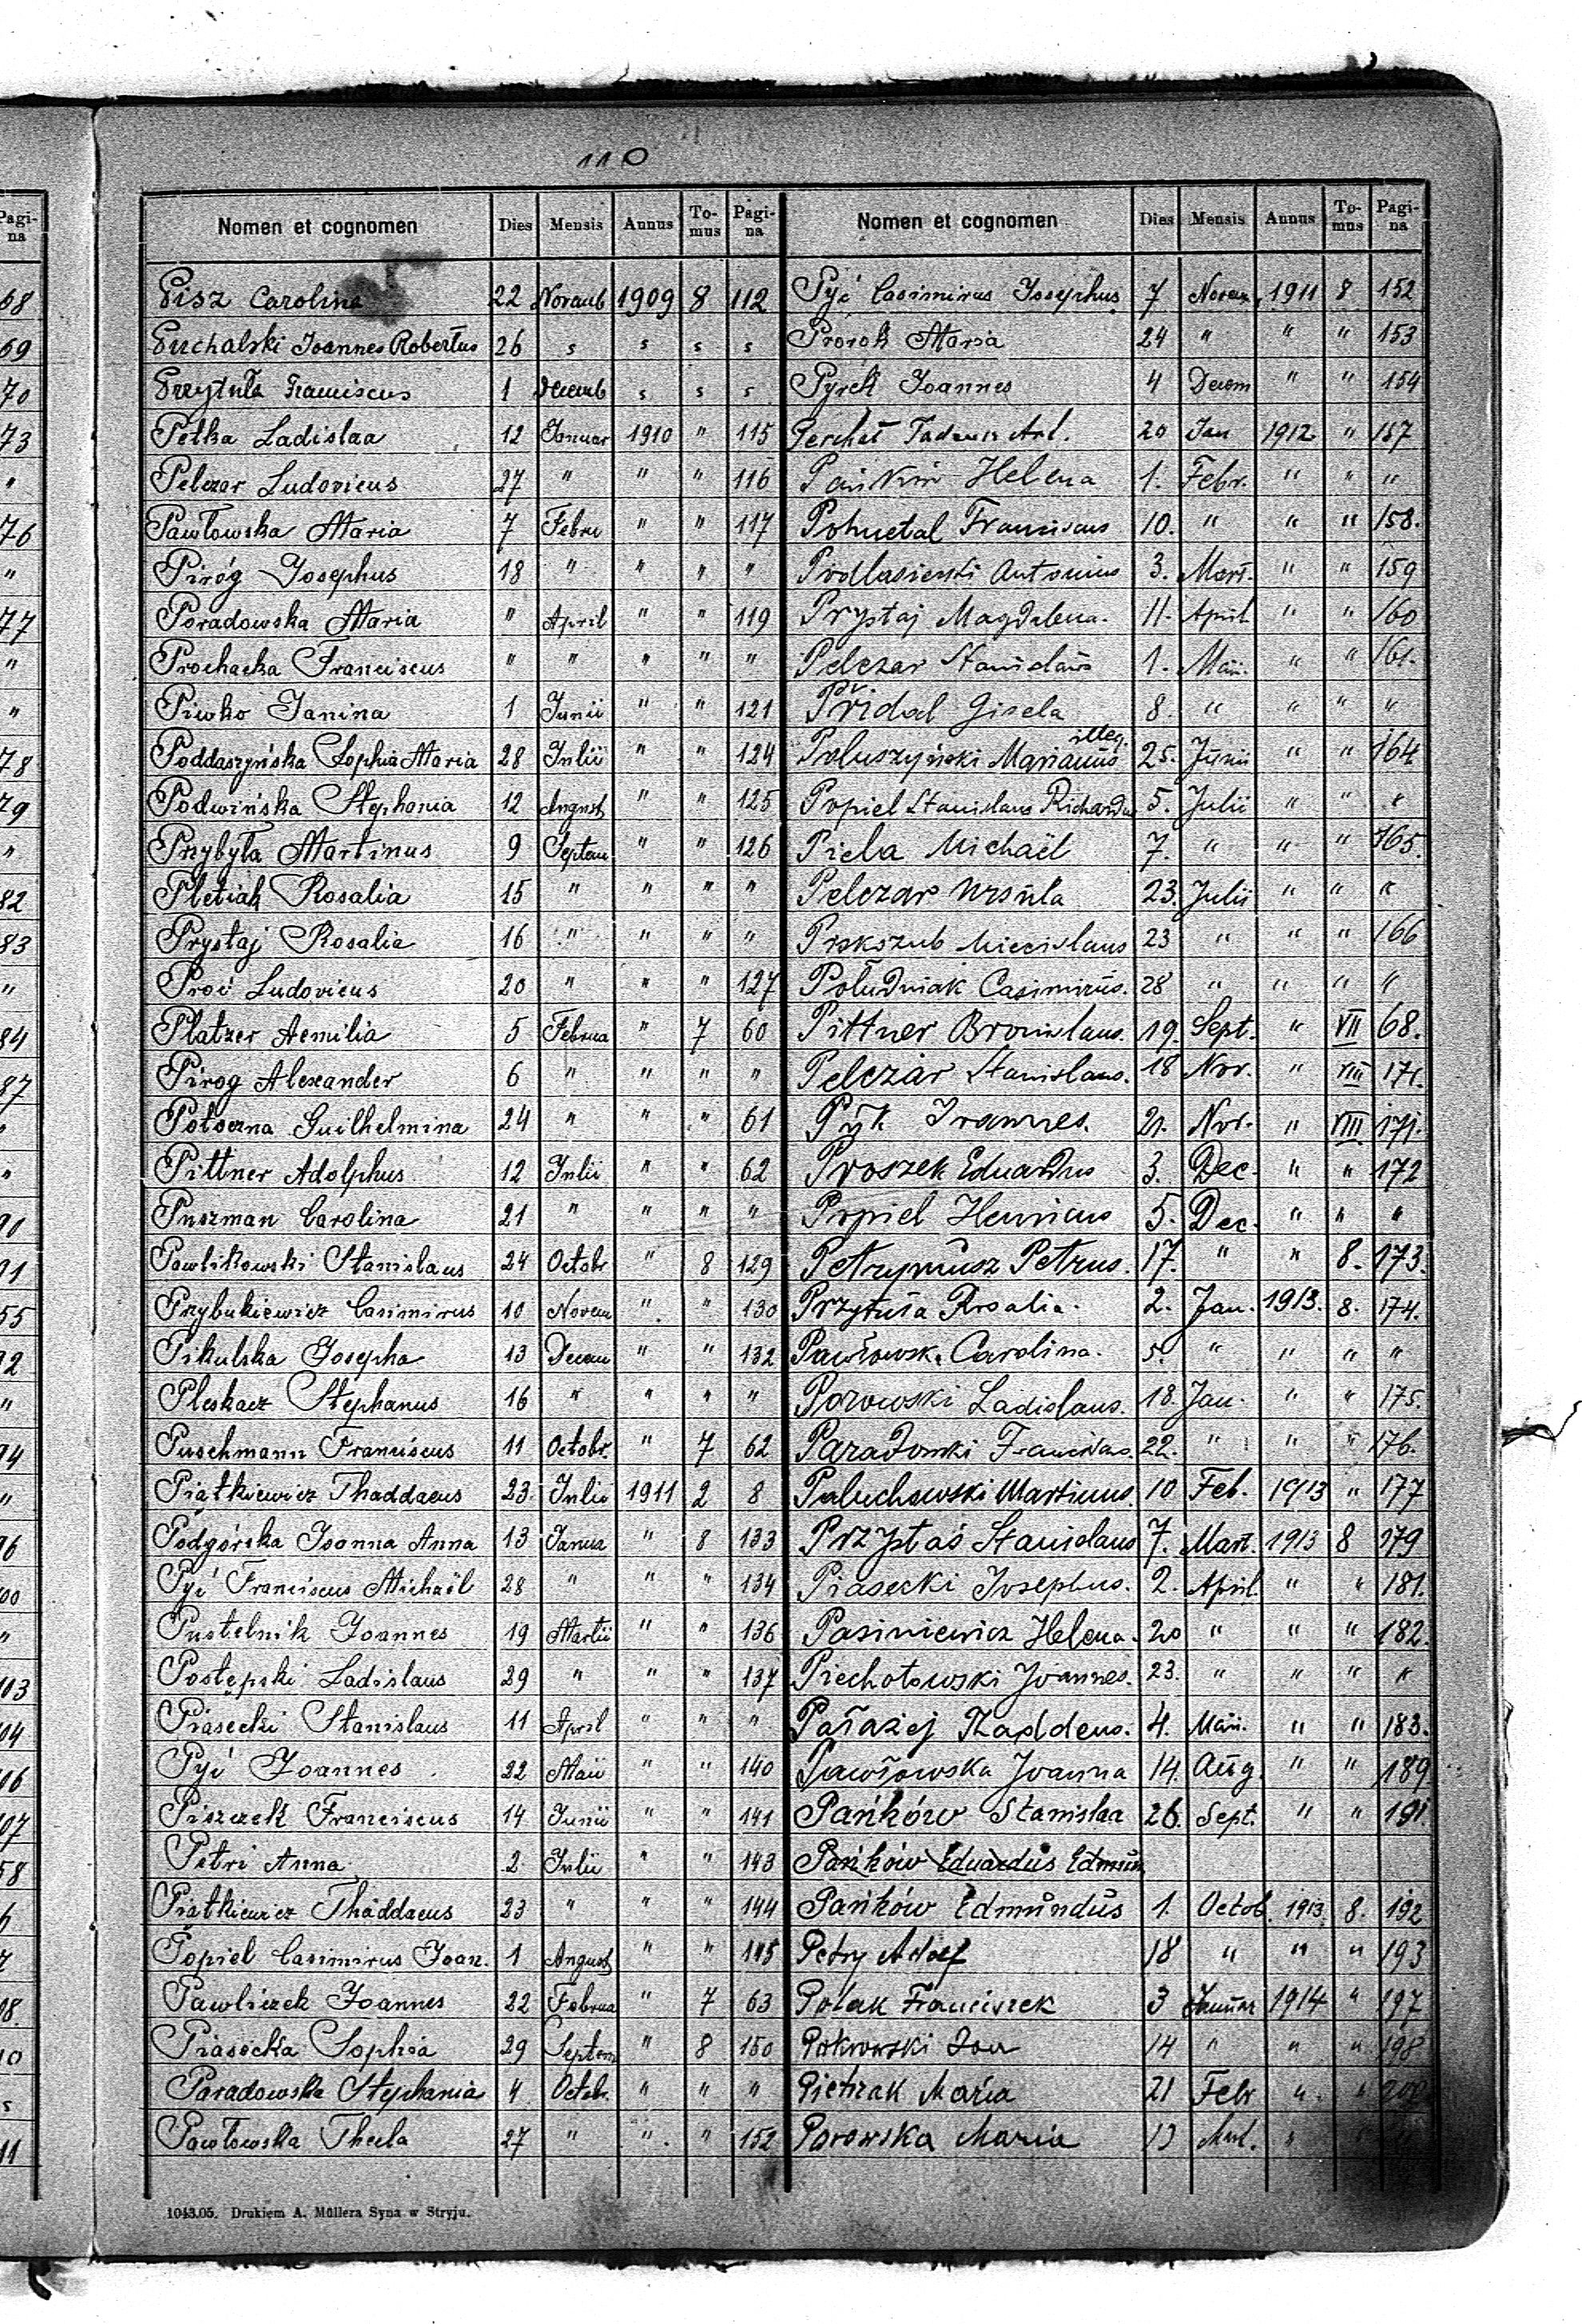 110
Nomen et cognomen Dies Mensis Annus To-mus Pagi-na
Pisz Carolina 22 Novemb 1909 8 112
Puchalski Joannes Robertus 26 s s s s
Przytuła Franciscus 1 Decemb s s s
Petka Ladislaa 12 Januar 1910 " 115
Pelczar Ludovicus 27 " " " 116
Pawłowska Maria 7 Febru " " 117
Piróg Josephus 18 " " " "
Poradowska Maria " April " " 119
Prochacka Franciscus " " " " "
Piwko Janina 1 Junii " " 121
Poddaszyńska Sophia Maria 28 Julii " " 124
Podwińska Stephania 12 August " " 125
Przybyła Martinus 9 Septem " " 126
Pletiak Rosalia 15 " " " "
Prystaj Rosalia 16 " " " "
Proć Ludovicus 20 " " " 127
Platzer Aemilia 5 Februa " 7 60
Pirog Alexander 6 " " " "
Potoczna Guilhelmina 24 " " " 61
Pittner Adolphus 12 Julii " " 62
Puszman Carolina 21 " " " "
Pawlikowski Stanislaus 24 Octobr " 8 129
Przybukiewicz Casimirus 10 Novem " " 130
Pikulska Josepha 13 Decem " " 132
Pleskacz Stephanus 16 " " " "
Puschmann Franciscus 11 Octobr. " 7 62
Piątkiewicz Thaddaeus 23 Julii 1911 2 8
Podgórska Joanna Anna 13 Janua " 8 133
Pyć Franciscus Michaël 28 " " " 134
Pustelnik Joannes 19 Martii " " 136
Postępski Ladislaus 29 " " " 137
Piasecki Stanislaus 11 April " " "
Pyć Joannes 22 Maii " " 140
Piszczek Franciscus 14 Junii " " 141
Petri Anna 2 Julii " " 143
Piątkiewicz Thaddaeus 23 " " " 144
Popiel Casimirus Joan. 1 August " " 145
Pawliczek Joannes 22 Februa " 7 63
Piasecka Sophia 29 Septem " 8 150
Paradowska Stephania 4 Octob. " " "
Pawłowska Thecla 27 " " " 152
1043.05. Drukiem A. Müllera Syna w Stryju.
Nomen et cognomen Dies Mensis Annus To-mus Pagi-na
Pyć Casimirus Josephus 7 Novem 1911 8 152
Prorok Maria 24 " " " 153
Pyrek Joannes 4 Decem " " 154
Perchał Tadeusz Ant. 20 Jan 1912 " 157
Helena 1. Febr. " " "
Pohnetal Franciscus 10. " " " 158.
Podlasienski Antonius 3. Mart. " " 159
Prystaj Magdalena. 11. April " " 160
Pelczar Stanislaus 1. Maii. " " 161.
Přidal Gisela 8. " " " "
Poluszyński Marianus illeg. 25. Junii " " 164
Popiel Stanislaus Richardus 5. Julii " " "
Piela Michaël 7. " " " 165.
Pelczar Ursula 23. Julii " " "
Prokszub Miecislaus 23 " " " 166
Południak Casimirus. 28 " " " "
Pittner Bronislaus. 19. Sept. " VII 68.
Pelczar Stanislaus. 18 Nov. " VIII 171.
Pyk Joannes. 21. Nov. " VIII 171.
Proszek Eduardus 3. Dec. " " 172
Popiel Henricus 5. Dec. " " "
Petrymusz Petrus. 17. " " 8. 173.
Przytuła Rosalia. 2. Jan. 1913. 8. 174.
Pawłowska Carolina. 5. " " " "
Porowski Ladislaus. 18. Jan. " " 175.
Paradowski Franciscus. 22. " " " 176.
Paluchowski Martinus. 10 Feb. 1913 " 177
Przystaś Stanislaus 7. Mart. 1913 8 179
Piasecki Josephus. 2. April " " 181.
Pasiniewicz Helena. 20 " " " 182.
Piechotowski Joannes. 23. " " " "
Pałażej Thaddeus. 4. Maii. " " 183.
Pawłowska Joanna 14. Aug. " " 189
Pańków Stanislaa 26. Sept. " " 191.
Pańków Eduardus Edmun
Pańków Edmundus 1. Octob. 1913. 8. 192
Petry Adolf 18 " " " 193
Polak Franciszek 3 Januar 1914 " 197
Pokrowski Jan 14 " " " 198
Pietrzak Maria 21 Febr " " 200
Porowska Maria 13 Mart. "